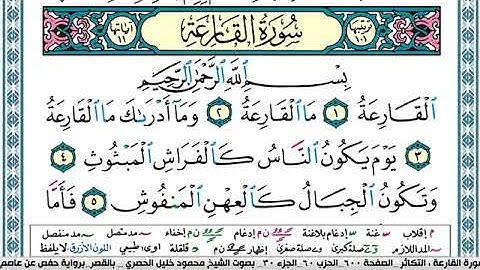 ترتيبها ١٠١ سورة القارعة آياتها ١١
بِسْمِ اللَّهِ الرَّحْمَٰنِ الرَّحِيمِ
ٱلْقَارِعَةُ ١ مَا ٱلْقَارِعَةُ ٢ وَمَآ أَدْرَىٰكَ مَا ٱلْقَارِعَةُ
٣ يَوْمَ يَكُونُ ٱلنَّاسُ كَٱلْفَرَاشِ ٱلْمَبْثُوثِ ٤
وَتَكُونُ ٱلْجِبَالُ كَٱلْعِهْنِ ٱلْمَنفُوشِ ٥ فَأَمَّا
م إقلاب س غنة س إدغام بلاغنة ن م إدغام ن م إخفاء مد متصل مد منفصل
مد اللازم صلة كبرى صلة صغرى إظهار ن م قلقلة اوى: طبيعي اللون الأزرق: لا يلفظ
سورة القارعة ، التكاثر_ الصفحة ٦٠٠_ الحزب ٦٠_ الجزء ٣٠_ بصوت الشيخ محمود خليل الحصري _ بالقصر_برواية حفص عن عاصم